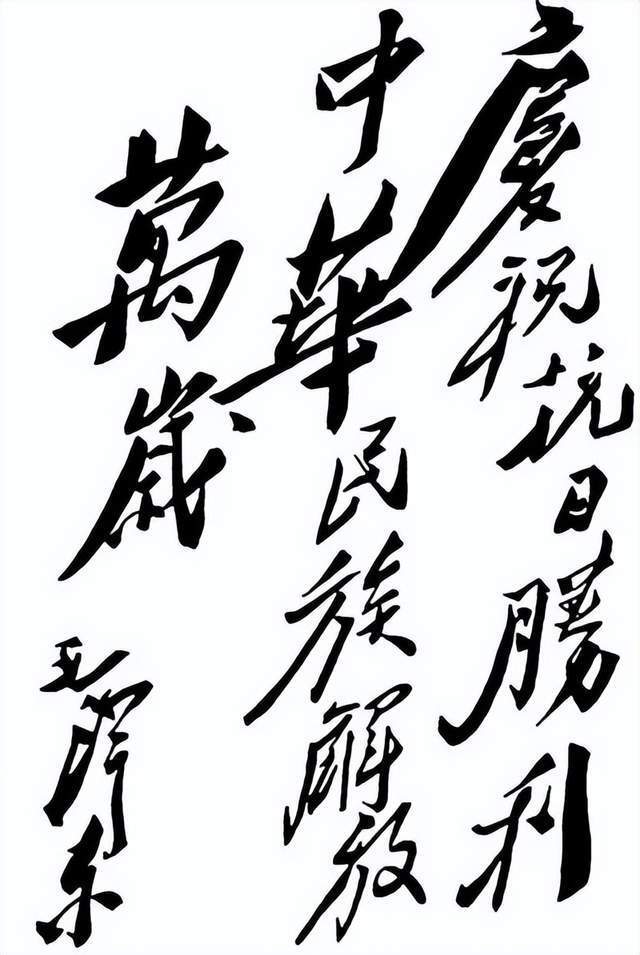 慶祝抗日勝利
中華民族解放
萬歲
毛澤东